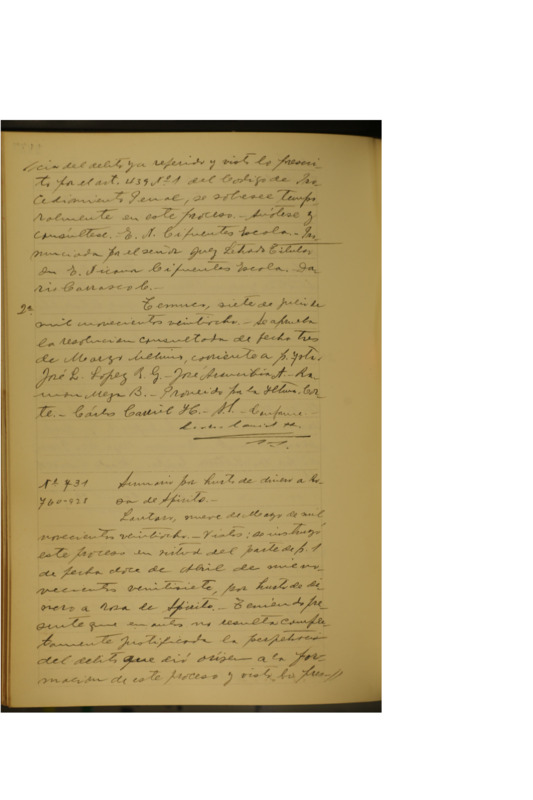 cia del delito ya referido y visto lo prescri
to por el art. 439 Nº 1 del Codigo de Pro
cedimiento Penal, se sobresee tempo
ralmente en este proceso.- Anótese y
consúltese. E. N. Cifuentes Escala.- Pro
nunciada por el señor Juez Letrado Titular
don E. Nicanor Cifuentes Escala. Da
rio Carrasco C.-
2ª. Temuco, siete de julio de
mil novecientos veintiocho.- Se aprueba
la resolucion consultada de fecha tres
de Marzo último, corriente a fs.
José L. Lopez R. G.- José A.- Ra
mon Meza B.- Proveido por la Iltma. Cor
te.- Cárlos H.C.- Conforme-
Nº 431 Sumario por hurto de dinero a Ro
760-928 sa de Spirito.-
Lautaro, nueve de Mayo de mil
novecientos veintiocho.- Vistos: se instruyó
este proceso en virtud del parte de fs. 1
de fecha doce de Abril de mil no
vecientos veintisiete, por hurto de di
nero a rosa de Spirito.- Teniendo pre
sente que en autos no resulta comple
tamente justificada la perpetracion
del delito que dió oríjen a la for
macion de este proceso y visto lo pres-//